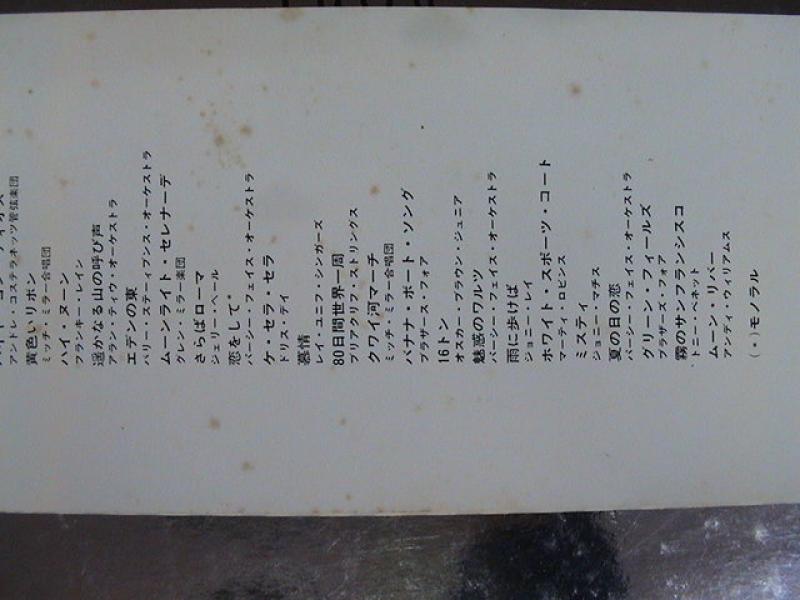 アンドレ・コステラネッツ管弦楽団
黄色いリボン
ミッチ・ミラー合唱団
ハイ・ヌーン
フランキー・レイン
遥かなる山の呼び声
アラン・ティウ・オーケストラ
エデンの東
バリー・スティーブンス・オーケストラ
ムーンライト・セレナーデ
グレン・ミラー楽団
さらばローマ
ジェリー・ベール
恋をして*
パーシー・フェイス・オーケストラ
ケ・セラ・セラ
ドリス・デイ
慕情
レイ・ユニフ・シンガーズ
80日間世界一周
ブリアクリフ・ストリングス
クワイ河マーチ
ミッチ・ミラー合唱団
バナナ・ボート・ソング
ブラザース・フォア
16トン
オスカー・ブラウン・ジュニア
魅惑のワルツ
パーシー・フェイス・オーケストラ
雨に歩けば
ジョニー・レイ
ホワイト・スポーツ・コート
マーティ・ロビンス
ミスティ
ジョニー・マチス
夏の日の恋
パーシー・フェイス・オーケストラ
グリーン・フィールズ
ブラザース・フォア
霧のサンフランシスコ
トニー・ベネット
ムーン・リバー
アンディ・ウィリアムス
(*)モノラル